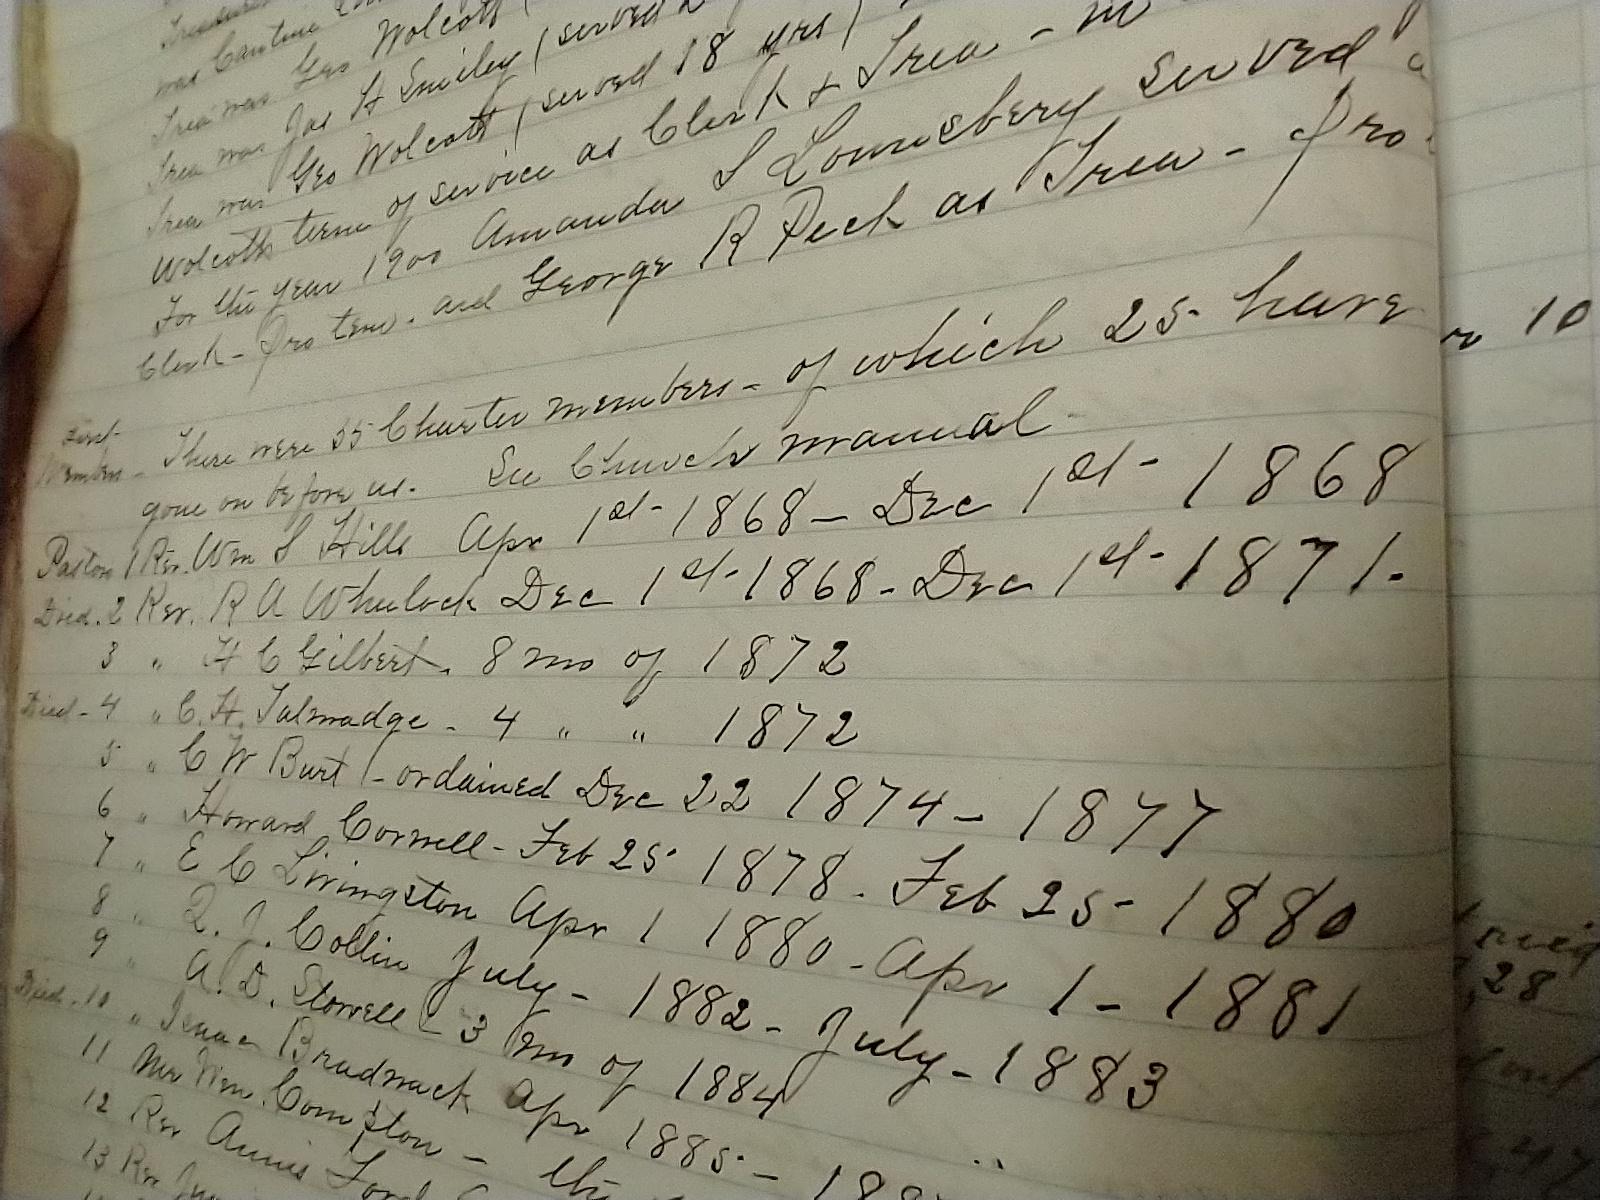 was
Trea was Geo Wolcott (
Trea was Jas H Smiley (served 2
Trea was Geo Wolcott (served 18 yrs)
Wolcotts term of service as Clerk & Trea -
For the year 1900 Amanda S Lounsbery served a
Clerk - Pro tem. and George R Peck as Trea - Pro
First There were 55 Charter members - of which 25 have
Members - gone on before us. See Church manual -
Pastors 1 Rev. Wm S Hills Apr 1st - 1868 - Dec 1st - 1868
Died. 2 Rev. R A Wheelock Dec 1st - 1868 - Dec 1st - 1871.
3 " H C Gilbert. 8 mo of 1872
Died - 4 " C. H. Talmadge - 4 " " 1872
5 " C W Burt - ordained Dec 22 1874 - 1877
6 " Howard Cornell - Feb 25 1878. Feb 25 - 1880
7 " E C Livingston Apr 1 1880 - Apr 1 - 1881
8 " Q. J. Collin July - 1882 - July - 1883
9 " A. D. Stowell - 3 mo of 1884
Died. 10 " Isaac Bradnack Apr 1885 -
11 Mr Wm. Compston -
12 Rev Annis Ford
13 Rev
10
28